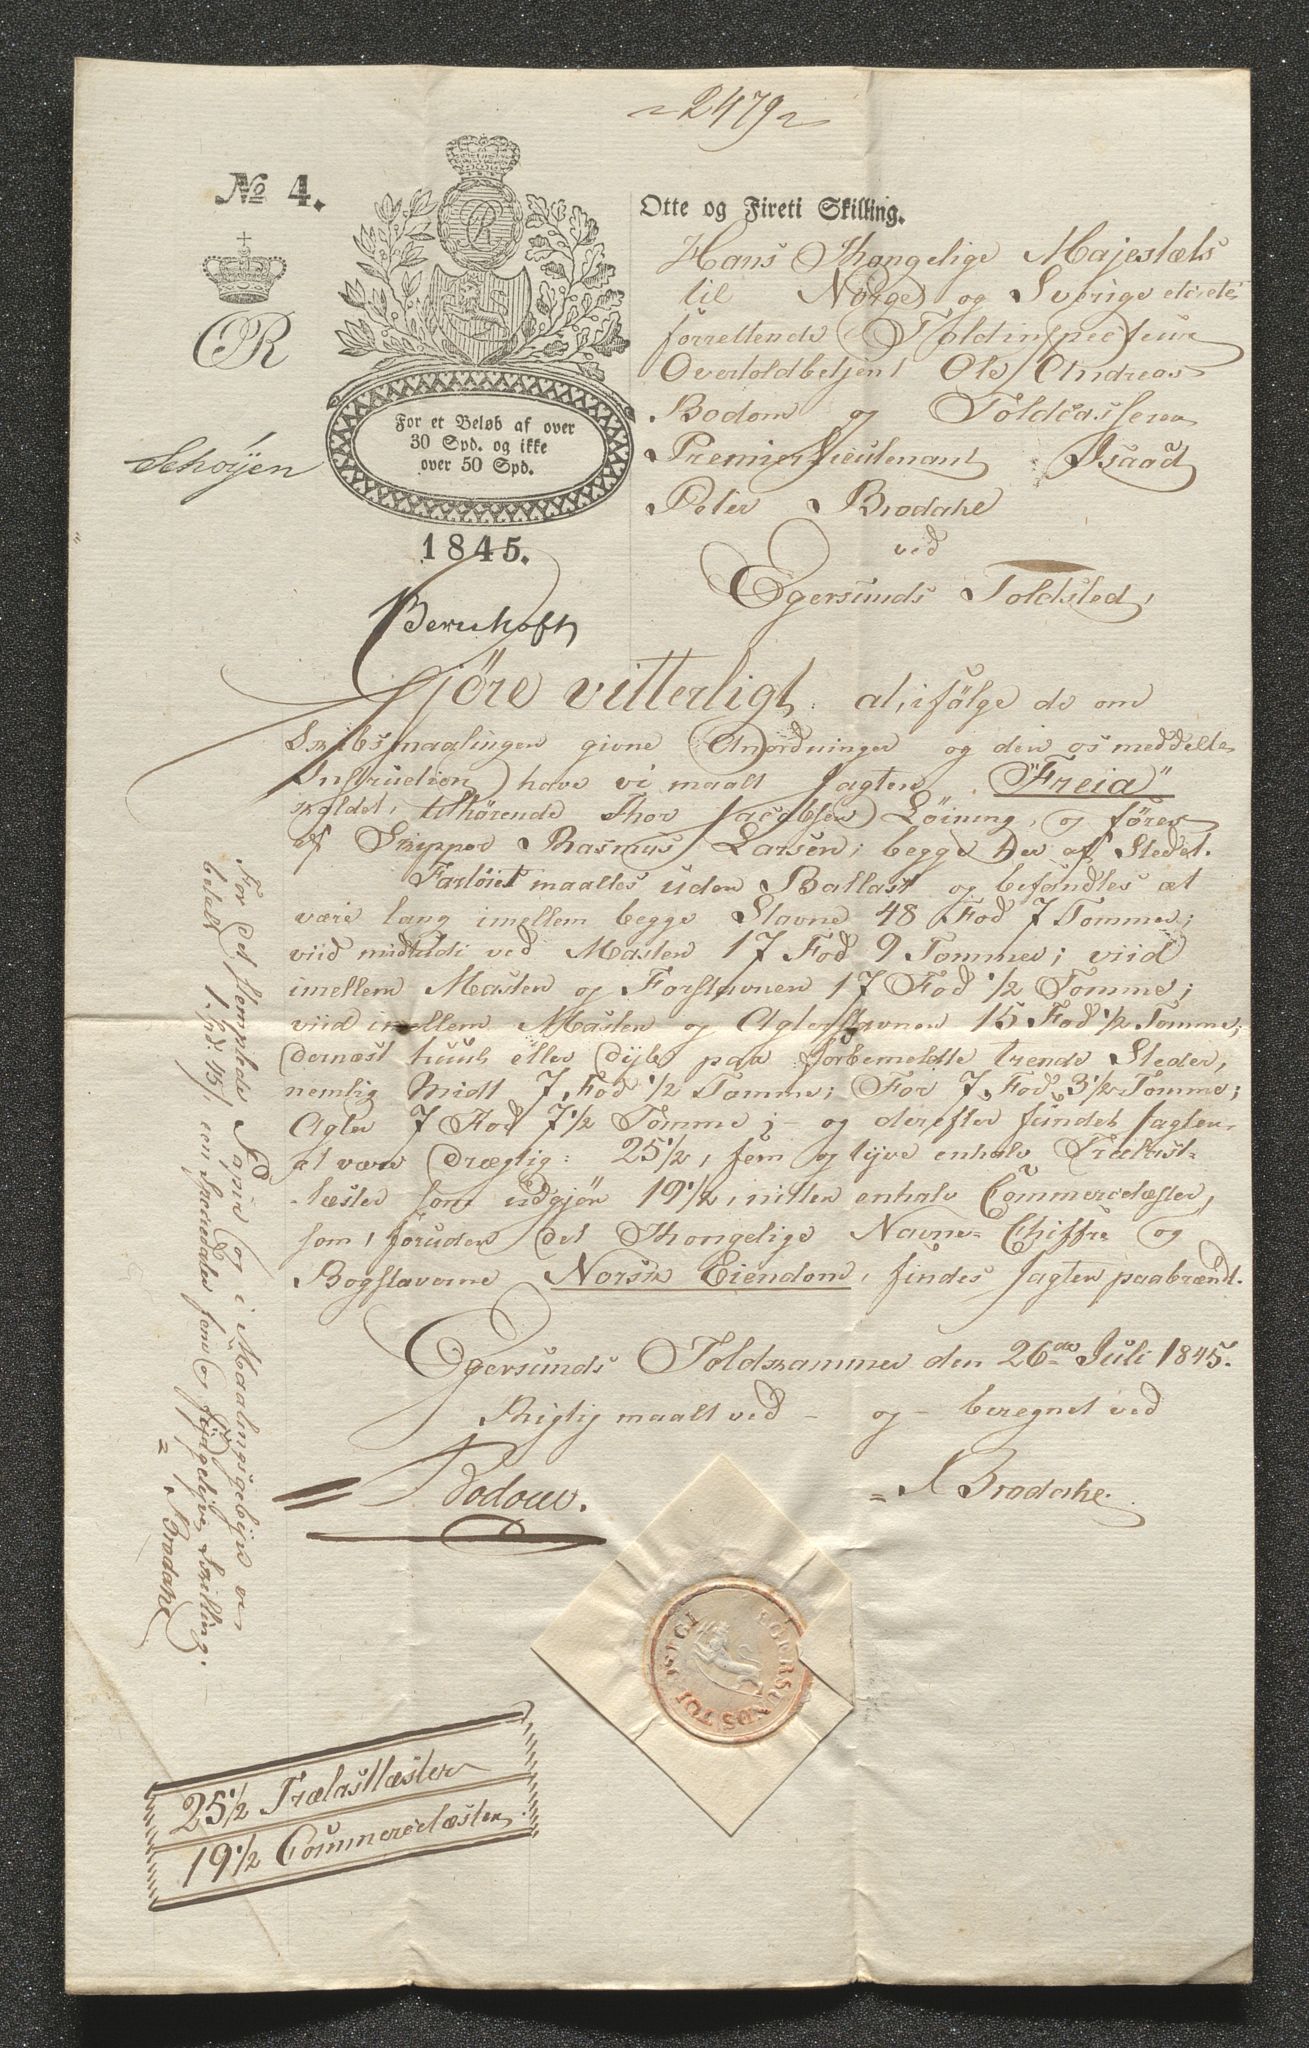 2479
No 4.
Otte og Fireti Skilling.
Hans Kongelige Majestæts
til Norge og Sverige etc: etc:
forrettende Toldinspecteur
Overtoldbetjent Ole Andreas
Bodom og Toldcasserer
Premierlieutenant Isaach
Peter Brodahl
ved
Egersunds Toldsted,
OR
For et Beløb af over
30 Spd. og ikke
over 50 Spd.
Schøyen
1845.
Berchoft
Gjøre vitterligt, at, ifølge de om
Skibsmaalingen givne Anordninger og den os meddelte
Instruction have vi maalt Jagten "Freia"
kaldet, tilhørende Thor Jacobsen Løining, og føres
af Skipper Rasmus Larsen; begge Der af Stedet.
Fartøiet maaltes uden Ballast og befandtes at
være lang imellem begge Stavne 48 Fod 7 Tommer;
viid midtudi ved Masten 17 Fod 9 Tommer; viid
imellem Masten og Forstavnen 17 Fod 1/2 Tomme;
viid imellem Masten og Agterstavnen 15 Fod 1/2 Tomme;
dernæst huul eller dyb paa forbemeldte trende Steder,
nemlig Midt 7 Fod 1/2 Tomme; For 7 Fod 3 1/2 Tomme;
Agter 7 Fod 7 1/2 Tomme; - og derefter fundet Jagten
at være drægtig: 25 1/2, fem og tyve enhalv Trælast-
læster som udgjør 19 1/2, nitten enhalv Commercelæster,
som, foruden det Kongelige Navne-Chiffre og
Bogstaverne Norsk Eiendom, findes Jagten paabrændt.
Egersunds Toldkammer den 26de Juli 1845.
Rigtig maalt ved - og - beregnet ved
Bodom. = Brodahl.
For det stemplede Papir og i Maalingsgebyr er
betalt 1 Spd: 45 /, een Speciedaler fem og fyrgetyve Skilling.
= Brodahl
EGERSUNDS TOLDSEGL
25 1/2 Trælastlæster
19 1/2 Commercelæster.